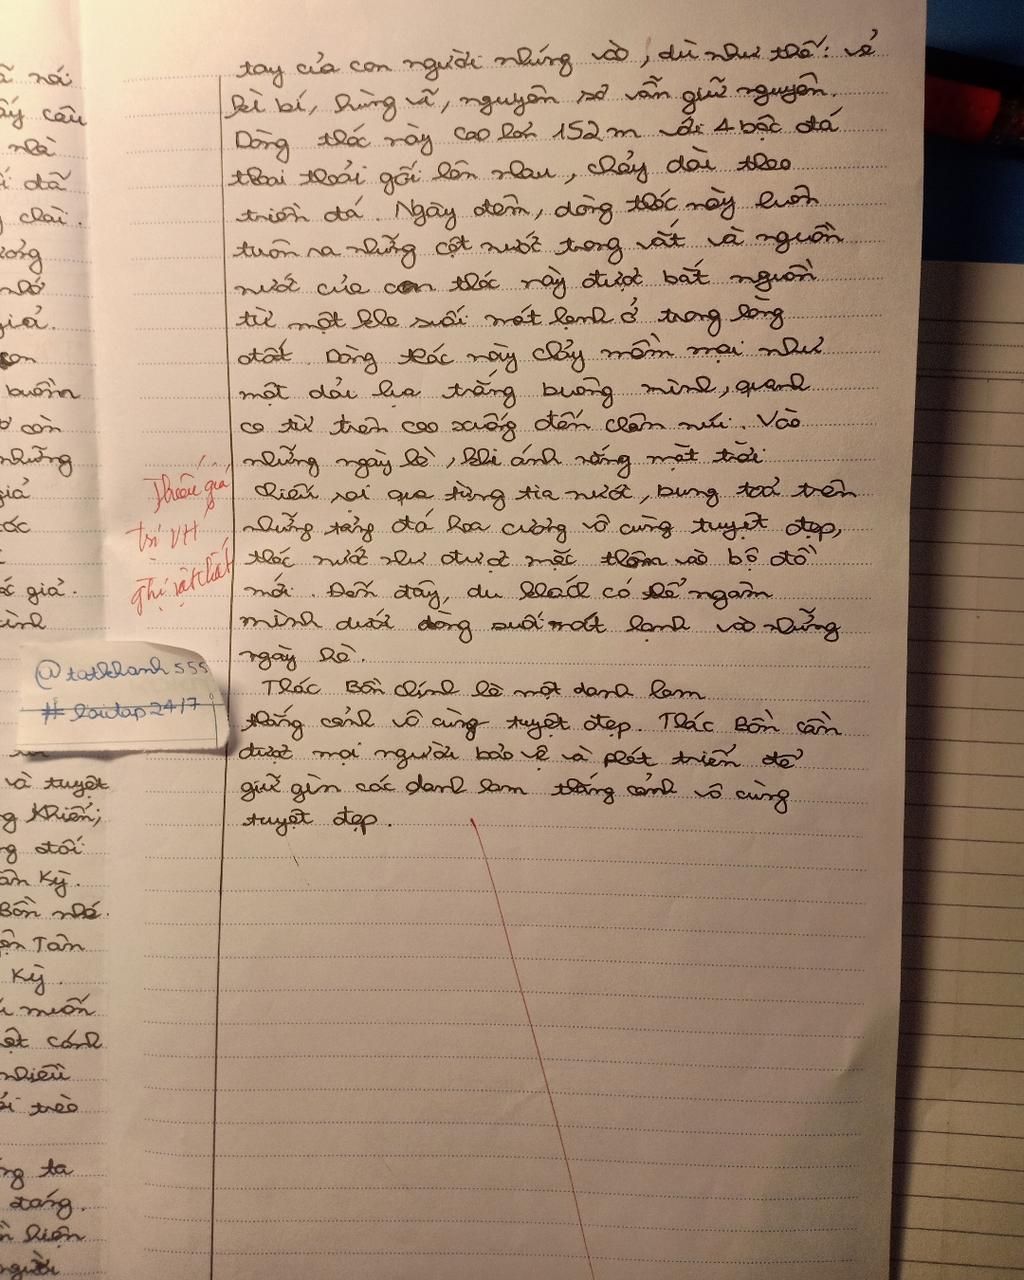 tay của con người nhúng vào, dù như thế: vẻ
kì bí, hùng vĩ, nguyên sơ vẫn giữ nguyên.
Dòng thác này cao hơn 152m với 4 bậc đá
thoai thoải gối lên nhau, chảy dài theo
triền đá. Ngày đêm, dòng thác này luôn
tuôn ra những cột nước trong vắt và nguồn
nước của con thác này được bắt nguồn
từ một khe suối mát lạnh ở trong lòng
đất Dòng thác này chảy mềm mại như
một dải lụa trắng buông mình, quanh
co từ trên cao xuống đến chân núi. Vào
những ngày hè, khi ánh nắng mặt trời
chiếu rọi qua từng tia nước, bung toả trên
những tảng đá hoa cương vô cùng tuyệt đẹp,
thác nước như được mặc thêm vào bộ đồ
mới. Đến đây, du khách có thể ngâm
mình dưới dòng suối mát lạnh vào những
ngày hè.
Thác Bồn chính là một danh lam
thắng cảnh vô cùng tuyệt đẹp. Thác Bồn cần
được mọi người bảo vệ và phát triển để
giữ gìn các danh lam thắng cảnh vô cùng
tuyệt đẹp.
Thiếu giá
trị VH
@tatkhanh555
#loutap24/7
ã nói
ấy câu
nhà
đã
chài.
nhớ
giả.
con
buồm
còn
những
giả
giả.
và tuyệt
Khiến;
đối
Kỳ.
Bồn nhé.
Tân
Kỳ.
muốn
cánh
nhiều
trèo
ta
hiện
người